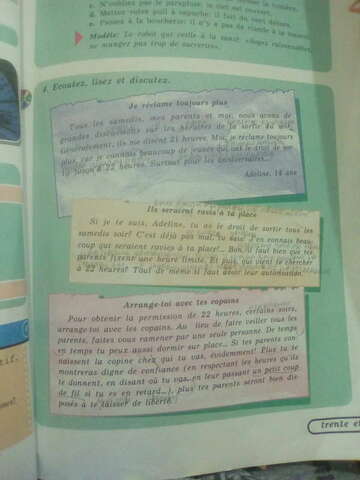 c. N'oubliez pas le parapluie: le ciel est couvert.
d. Mettez votre pull à capuche: il fait du vent dehors.
e. Passez à la boucherie: il n'y a pas de viande à la maison
Modèle: Le robot qui veille à ta santé: «Soyez raisonnables,
ne mangez pas trop de sucreries».
4. Ecoutez, lisez et discutez.
Je réclame toujours plus
Tous les samedis, mes parents et moi, nous avons de
grandes discussions sur les horaires de la sortie du soir.
Généralement, ils me disent 21 heures. Moi, je réclame toujours
plus, car je connais beaucoup de jeunes qui ont le droit de sor-
tir jusqu'à 22 heures. Surtout pour les anniversaires...
Adeline, 14 ans
Ils seraient ravis à ta place
Si je te suis, Adeline, tu as le droit de sortir tous les
samedis soir! C'est déjà pas mal, tu sais! J'en connais beau-
coup qui seraient ravis à ta place!... Bon, il faut bien que tes
parents fixent une heure limite. Et puis, qui vient te chercher
à 22 heures? Tout de même il faut avoir leur autorisation.
Arrange-toi avec tes copains
Pour obtenir la permission de 22 heures, certains soirs,
arrange-toi avec les copains. Au lieu de faire veiller tous les
parents, faites vous ramener par une seule personne. De temps
en temps tu peux aussi dormir sur place... Si tes parents con-
naissent la copine chez qui tu vas, évidemment! Plus tu te
montreras digne de confiance (en respectant les heures qu'ils
te donnent, en disant où tu vas, en leur passant un petit coup
de fil si tu es en retard...), plus tes parents seront bien dis-
posés à te laisser de liberté.
trente et